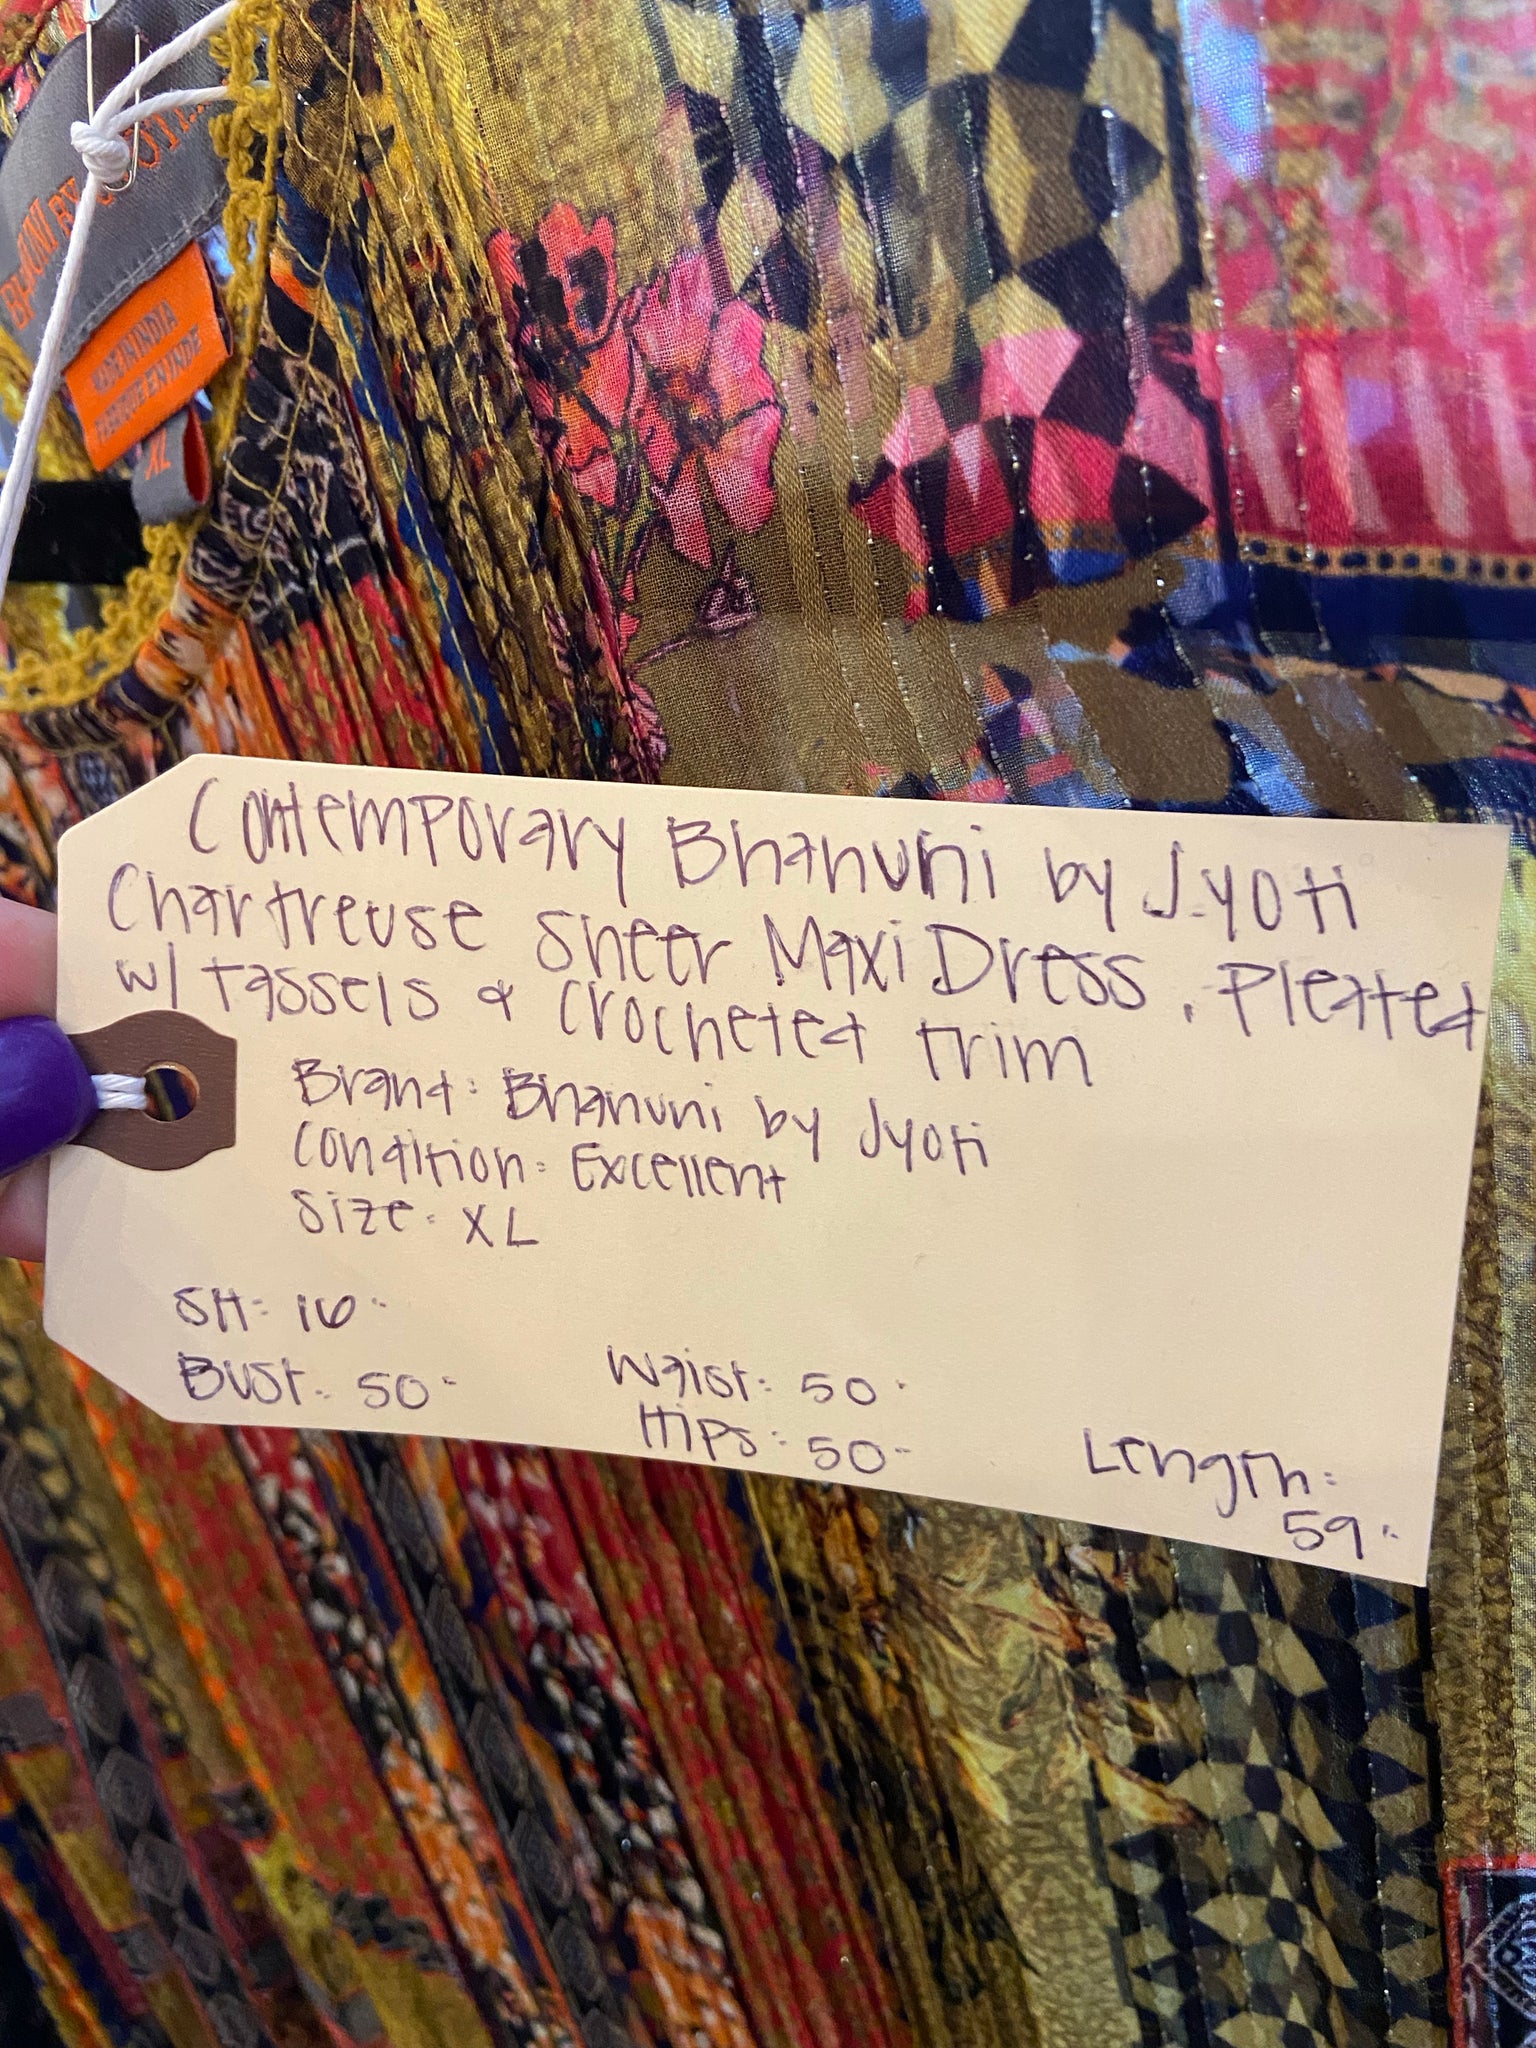 BHANUNI BY JYOTI
MADE IN INDIA
FABRIQUE EN INDE
XL
Contemporary Bhanuni by Jyoti
Chartreuse Sheer Maxi Dress, Pleated
w/ tassels & Crocheted trim
Brand: Bhanuni by Jyoti
Condition: Excellent
Size: XL
SH: 16"
Bust: 50"
Waist: 50"
Hips: 50"
Length:
59"